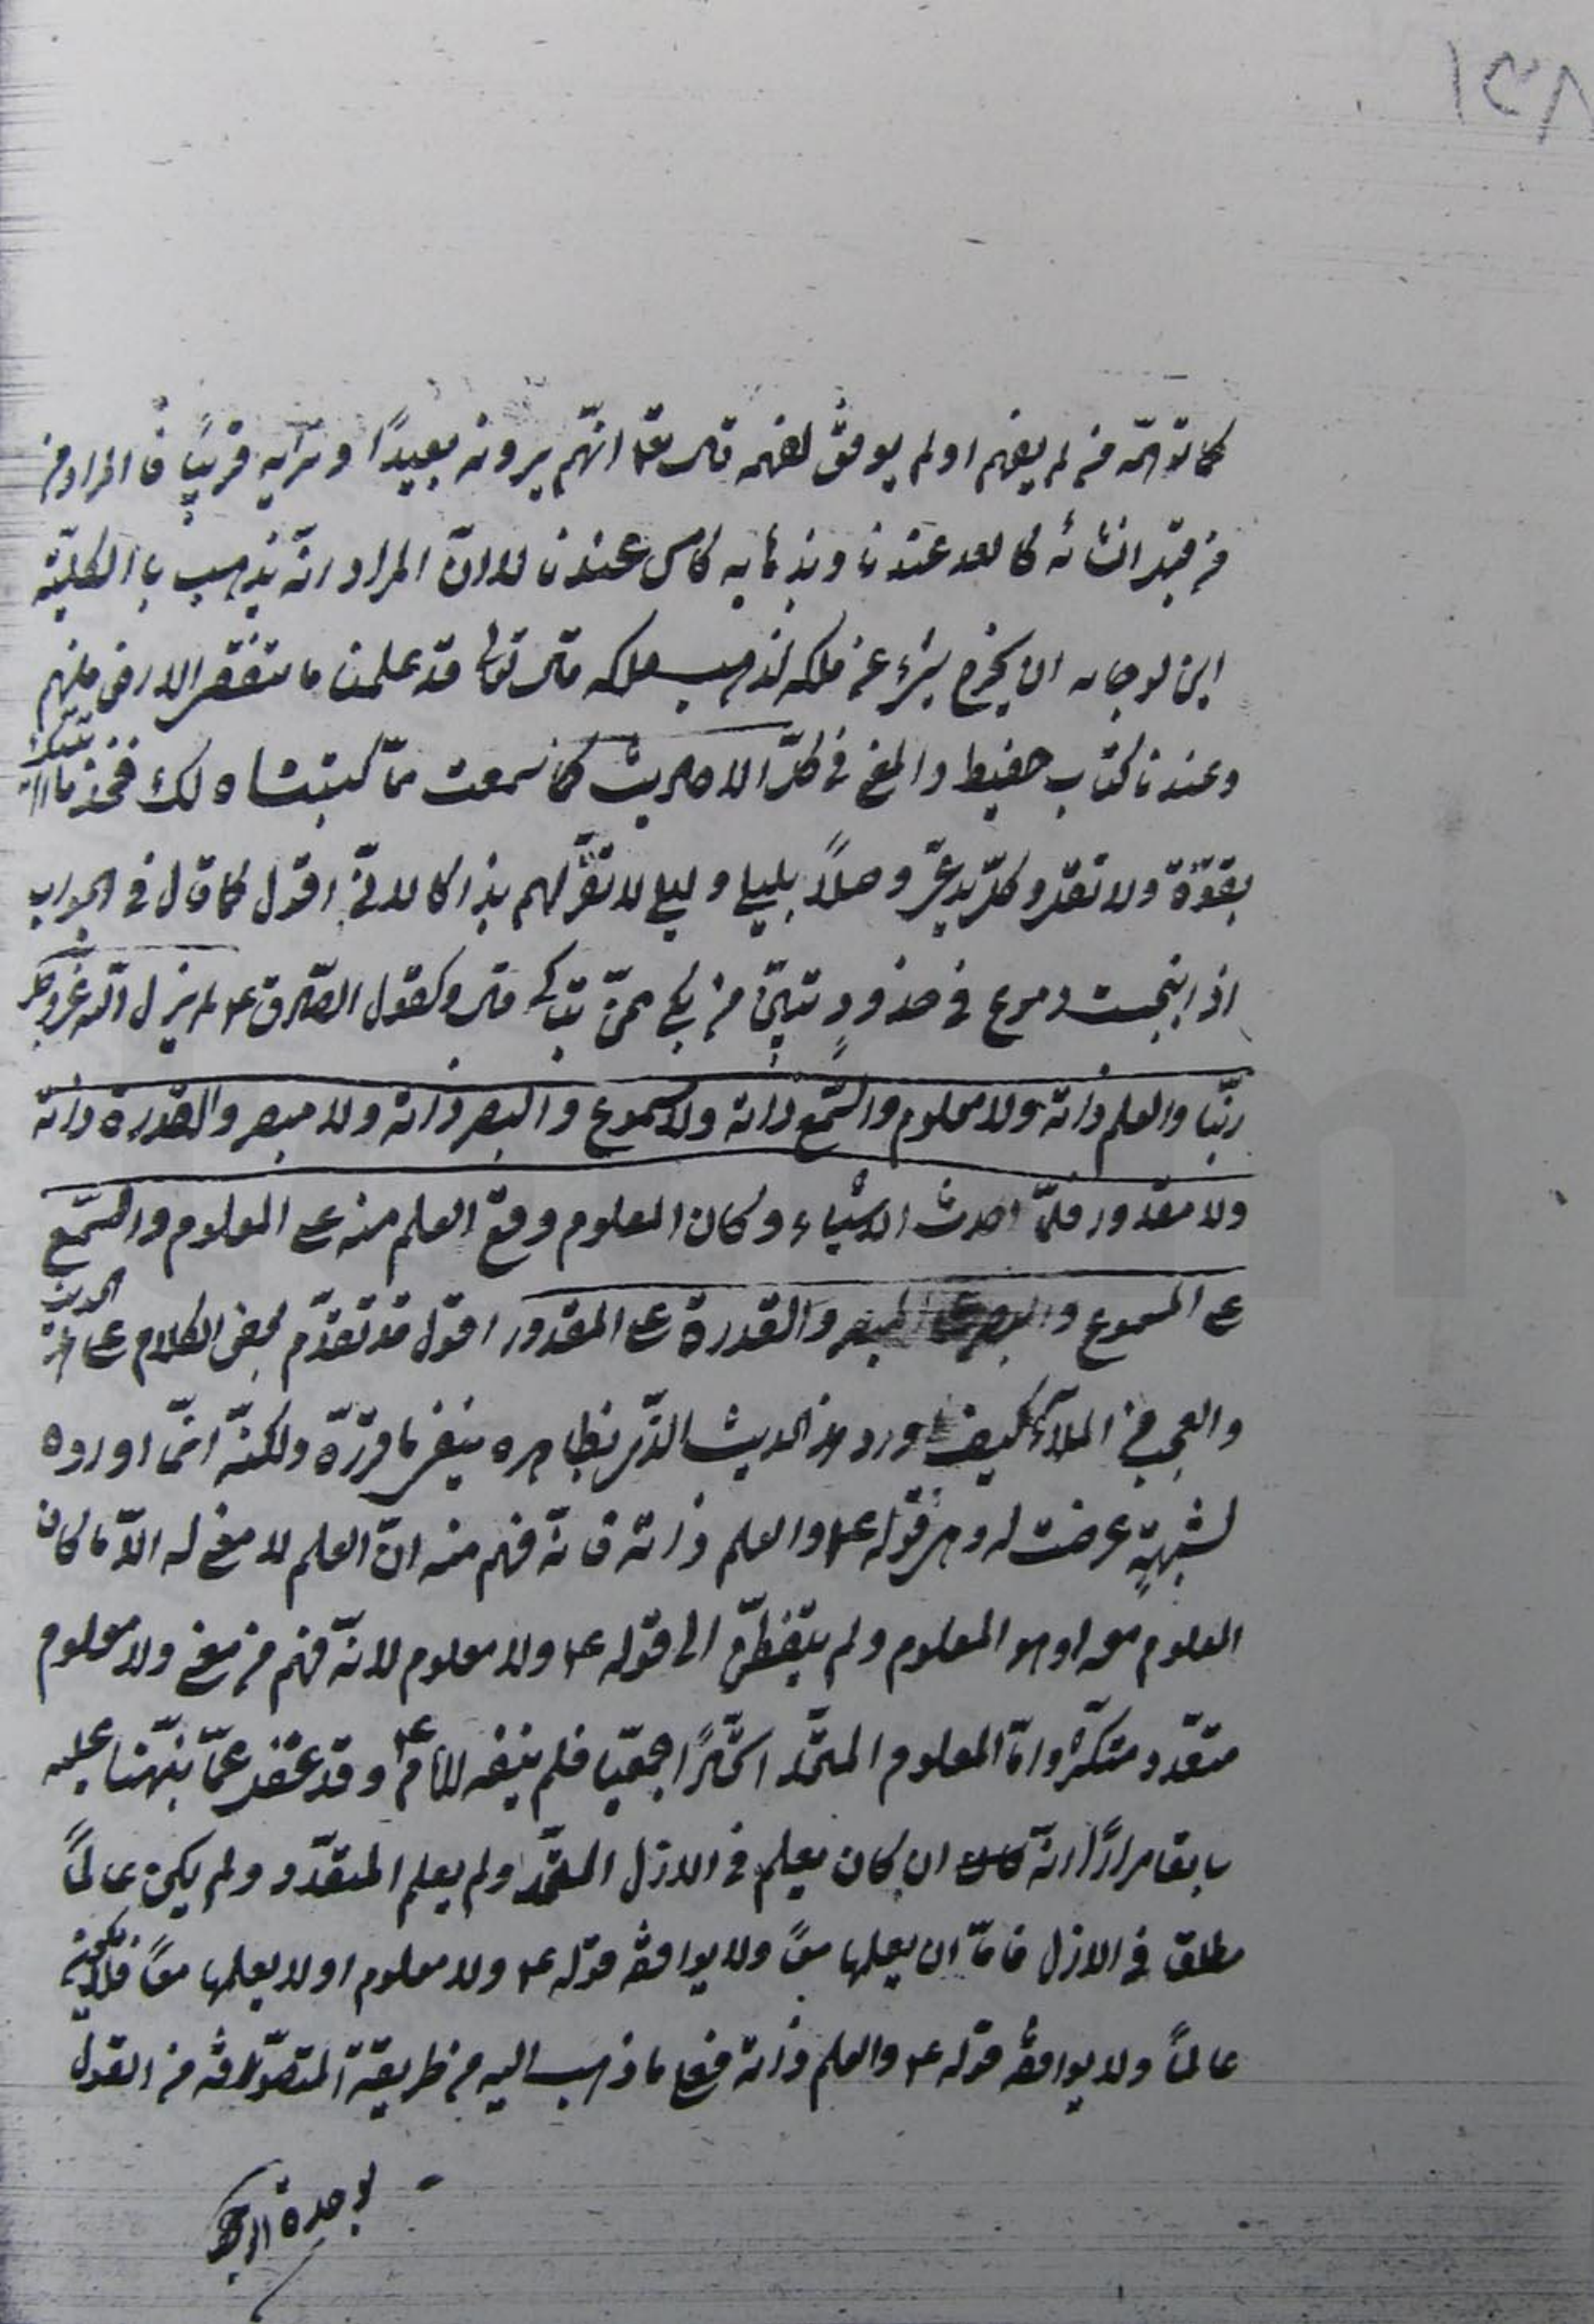 ١٣٨
كما توهّمه من لم يفهم او لم يوفق لفهمه قال تعا انّهم يرونه بعيدًا و نريه قريبًا فالمراد من
من قبل انشائه كالعد عندنا و بذهابه كامس عندنا لا انّ المراد انّه يذهب با الكليّة
اين لو جاز ان يخرج شيء عن ملكه لذهب ملكه قال تعالى قد علمنا ما تنقص الارض منهم
وعندنا كتاب حفيظ والمعنى في كلّ الاحاديث كما سمعت ممّا كتبناه لك فخذ ما آتيتك
بقوّة ولا تقل وكلّ يدعي وصلاً بليلى وليلى لا تقرّ لهم بذاكا لانّي اقول كما قال في الجواب
اذا انبجست دموع في خدود تبيّن من بكى ممّن تباكى قال وكقول الصّادق ع لم يزل اللّه عزّ وجل
ربّنا والعلم ذاته ولا معلوم والسّمع ذاته ولا مسموع والبصر ذاته ولا مبصر والقدرة ذاته
ولا مقدور فلمّا احدث الاشياء وكان المعلوم وقع العلم منه على المعلوم والسّمع
على المسموع والبصر على المبصر والقدرة على المقدور اقول قد تقدّم بعض الكلام على هذا الحديث
والعجب من الملّا كيف اورد هذا الحديث الذّي بظاهره ينفي ما قرّره ولكنّه انّما اورده
لشبهةٍ عرضت له وهي قوله ع والعلم ذاته فانّه فهم منه انّ العلم لا معنى له الّا ما كان
المعلوم معه او هو المعلوم ولم يتفطّن الى قوله ع ولا معلوم لانّه فهم من معنى ولا معلوم
متعدّد متكثّر وامّا المعلوم المتّحد اتّحادًا جمعيّا فلم ينفه الامام ع وقد غفل عمّا نبّهنا عليه
سابقا مرارًا انّه ان كان يعلم في الازل المتّحد ولم يعلم المتعدّد ولم يكن عالمًا
مطلق في الازل فامّا ان يعلمها معًا ولا يوافقه قوله ع ولا معلوم او لا يعلمها معًا فلا يكون
عالمًا ولا يوافقه قوله ع والعلم ذاته فعلى ما ذهب اليه من طريقة المتصوّفة من القول
بوحدة الوجود